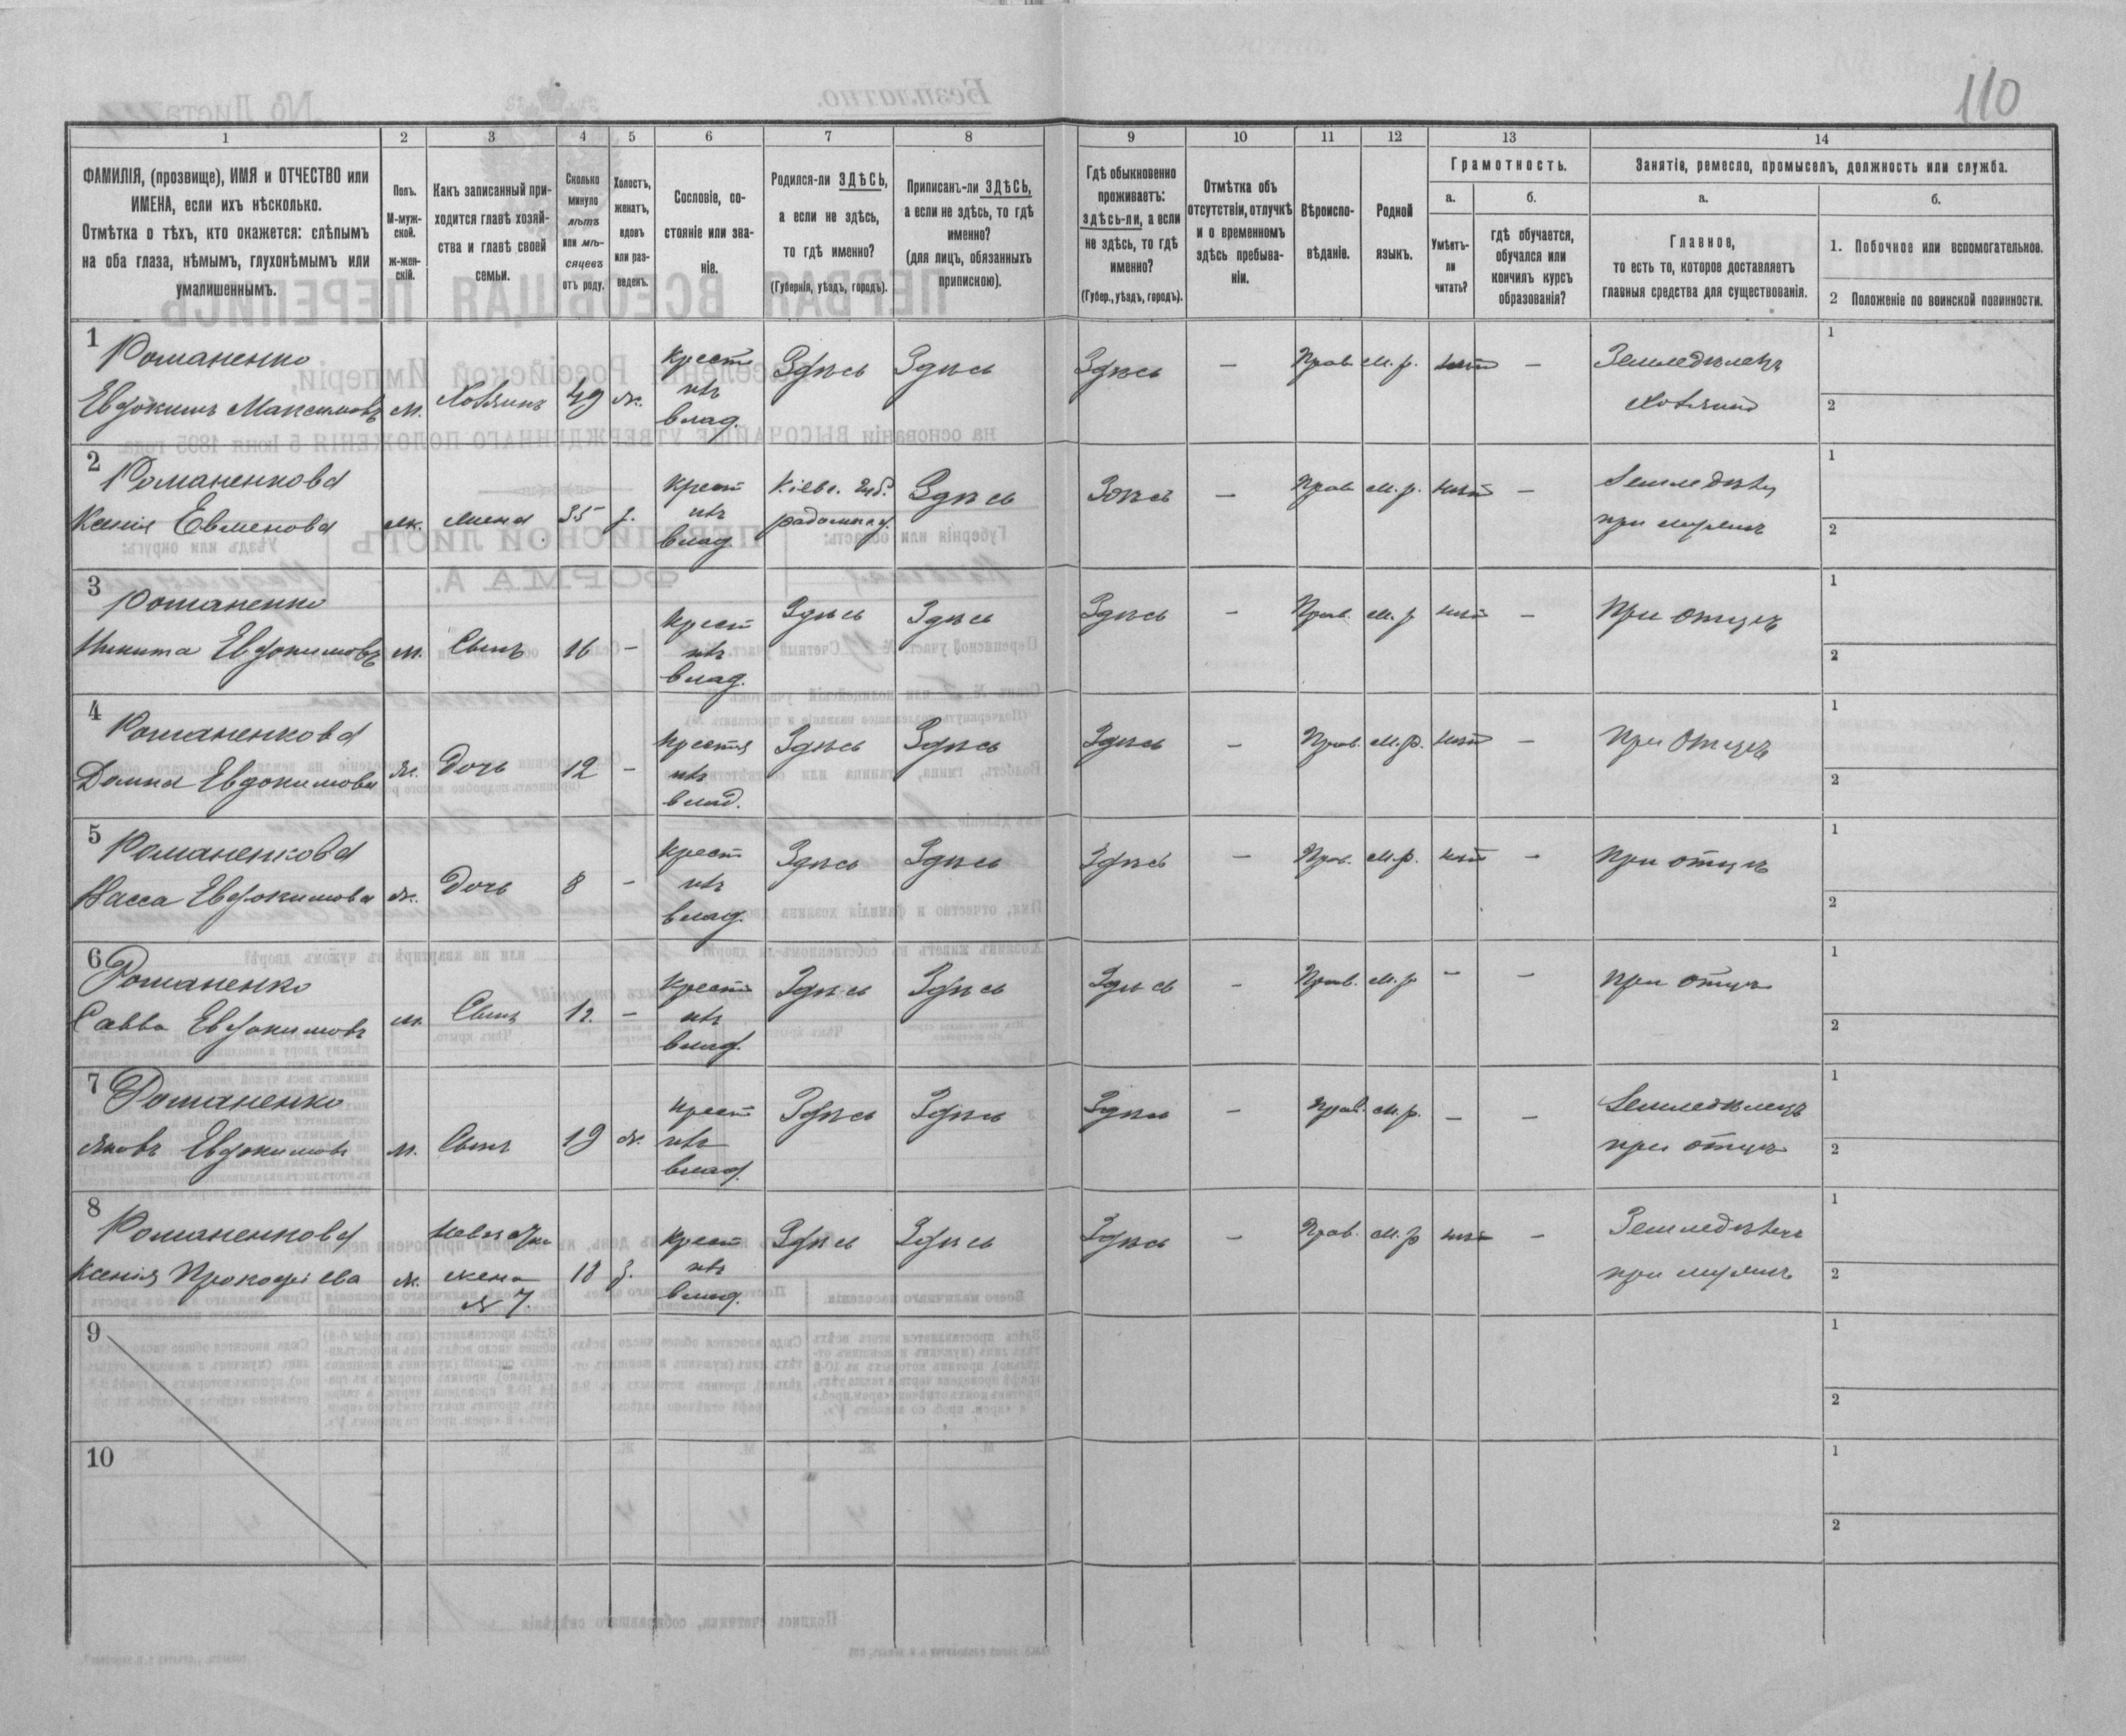 110
1
2
3
4
5
6
7
8
9
10
11
12
13
14
ФАМИЛІЯ, (прозвище), ИМЯ и ОТЧЕСТВО или
ИМЕНА, если ихъ нѣсколько.
Отмѣтка о тѣхъ, кто окажется: слѣпымъ
на оба глаза, нѣмымъ, глухонѣмымъ или
умалишеннымъ.
Полъ.
М-муж-
ской.
ж-жен-
скій.
Какъ записанный при-
ходится главѣ хозяй-
ства и главѣ своей
семьи.
Сколько
минуло
лѣтъ
или мѣ-
сяцевъ
отъ роду.
Холостъ,
женатъ,
вдовъ
или раз-
веденъ.
Сословіе, со-
стояніе или зва-
ніе.
Родился-ли ЗДѢСЬ,
а если не здѣсь,
то гдѣ именно?
(Губернія, уѣздъ, городъ).
Приписанъ-ли ЗДѢСЬ,
а если не здѣсь, то гдѣ
именно?
(для лицъ, обязанныхъ
припискою).
Гдѣ обыкновенно
проживаетъ:
здѣсь-ли, а если
не здѣсь, то гдѣ
именно?
(Губер., уѣздъ, городъ).
Отмѣтка объ
отсутствіи, отлучкѣ
и о временномъ
здѣсь пребыва-
ніи.
Вѣроиспо-
вѣданіе.
Родной
языкъ.
Грамотность.
а.
Умѣетъ-
ли
читать?
б.
гдѣ обучается,
обучался или
кончилъ курсъ
образованія?
Занятія, ремесло, промыселъ, должность или служба.
а.
Главное,
то есть то, которое доставляетъ
главныя средства для существованія.
б.
1. Побочное или вспомогательное.
2 Положеніе по воинской повинности.
1
Романенко
Евдокимъ Максимовъ м. Хозяинъ 49 ж. крест. изъ влад. Здѣсь Здѣсь Здѣсь — Прав. м. р. нѣт — Земледѣлецъ
хозяинъ
1
2
2
Романенкова
Ксенія Евменова ж. жена 35 з. крест изъ влад. Кіевс. губ. радомыс у. Здѣсь Здѣсь — Прав м. р. нѣт —
при мужѣ
1
2
3
Романенко
Никита Евдокимовъ м. Сынъ 16 — крест изъ влад. Здѣсь Здѣсь Здѣсь — Прав. м. р нѣт — При отцѣ
1
2
4
Романенкова
Домна Евдокимова ж. дочь 12 — крестья изъ влад. Здѣсь Здѣсь Здѣсь — Прав. м. р. нѣт — При отцѣ
1
2
5
Романенкова
Васса Евдокимова ж. дочь 8 — крест изъ влад. Здѣсь Здѣсь Здѣсь — Прав. м. р. нѣт — При отцѣ
1
2
6
Романенко
Савва Евдокимовъ м. Сынъ — крест изъ влад. Здѣсь Здѣсь Здѣсь — Прав. м. р — — при отцѣ
1
2
7
Романенко
Яковъ Евдокимовъ м. Сынъ 19 ж. крест изъ влад. Здѣсь Здѣсь Здѣсь — Прав. м. р. — — Земледѣлецъ
при отцѣ
1
2
8
Романенкова
Ксенія Прокофіева ж. Невѣстка жена № 7. 18 з. крест изъ влад. Здѣсь Здѣсь Здѣсь — Прав. м. р нѣт —
при мужѣ
1
2
9
1
2
10
1
2